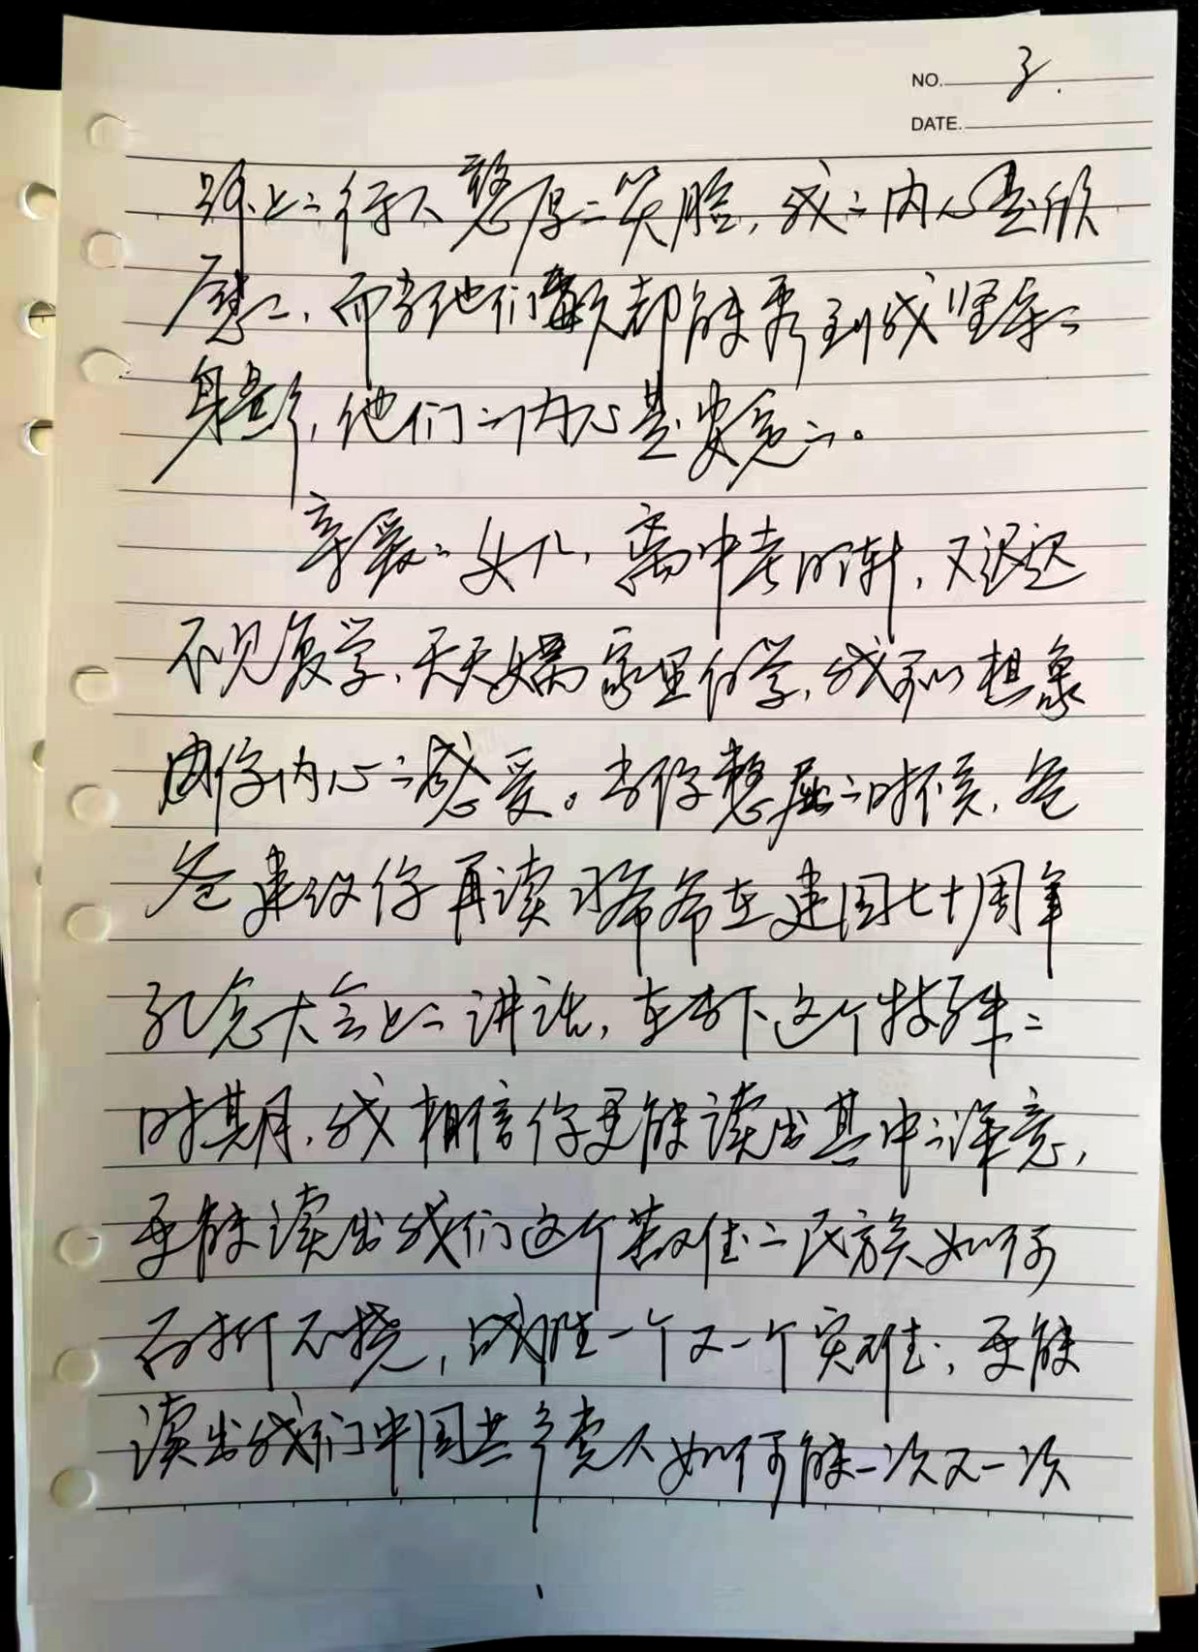 NO. 3.
DATE.
路上的行人憨厚的笑脸,我的内心是欣
慰的,而当他们每天都能看到我坚守的
身影,他们的内心是安宽的。
亲爱的女儿,离中考临近,又迟迟
不见复学,天天嬌家里网学,我可以想象
出你内心的感受。当你憋屈的时候,爸
爸建议你再读习爷爷在建国七十周年
纪念大会上的讲话,在当下这个特殊的
时期,我相信你更能读出其中的深意,
更能读出我们这个苦难的民族如何
百折不挠,战胜一个又一个灾难;更能
读出我们中国共产党人如何能一次又一次